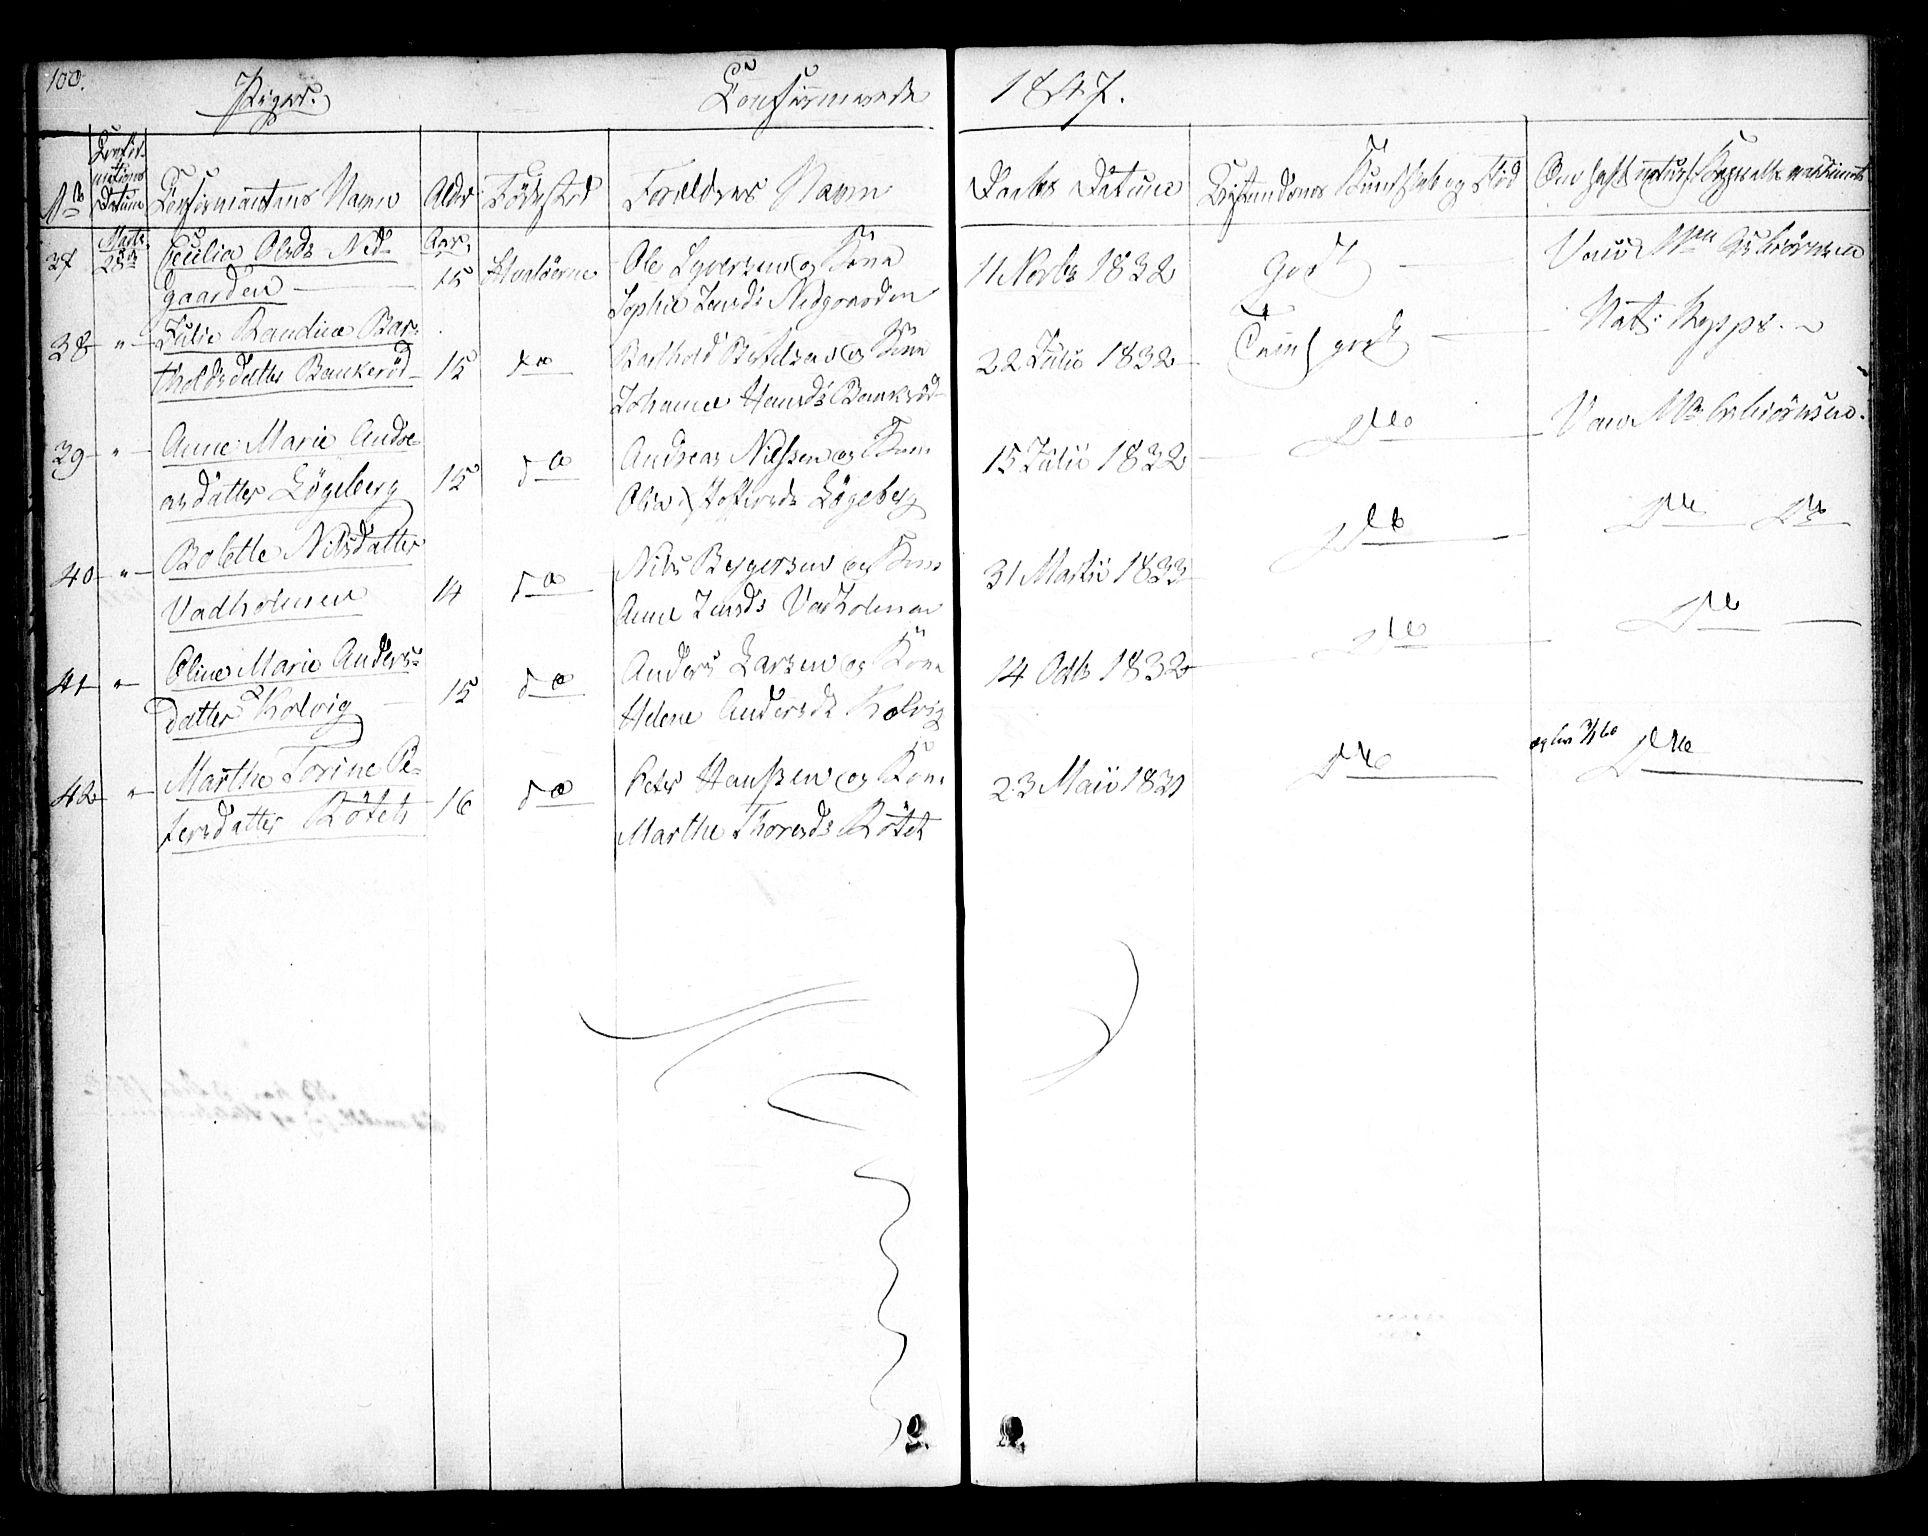 100.
Piger.
Confirmerede
1847.
No
Confirmations Datum
Confirmantens Navn
Alder
Födested
Forældres Navn
Daabs Datum
Kristendoms Kundskab og Flid
Om havt naturl. Kopper eller vaccineret
37
Marts 28de
Cecilia Olsdr Ned-
gaarden
Aar. 15
Hvalöerne
Ole Syversen og Kone
Sophie Jensdr Nedgaarden
11 Novbr 1832
God
Vacc.
38 "
Julie Bandine Bar-
tholdsdatter Bankeröd
15
do
Barthold Bentzen og Kone
Johanne Hansdr Bankeröd
22 Julii 1832
god
Nat: Kopper
39 "
Anne Marie Andre-
asdatter Lögeberg
15
do
Andreas Nilssen og Kone
Lögeberg
15 Julii 1832
Dto
Vacc.
40 "
Bolette Nilsdatter
Vadholmen
14
do
Nils Bergersen og Kone
Anne Jensdr Vadholmen
31 Martii 1833
Dto
Dto Do
41 "
Oline Marie Anders-
datter Kolvig
15
do
Anders Larsen og Kone
Helene Andersdr Kolvig
14 Octbr 1832
Dto
Dto
42 "
Marthe Torine Pe-
tersdatter Rödet
16
do
Peter Hanssen og Kone
Marthe Thoresdr Rödet
23 Maii 1831
Dto
Dto